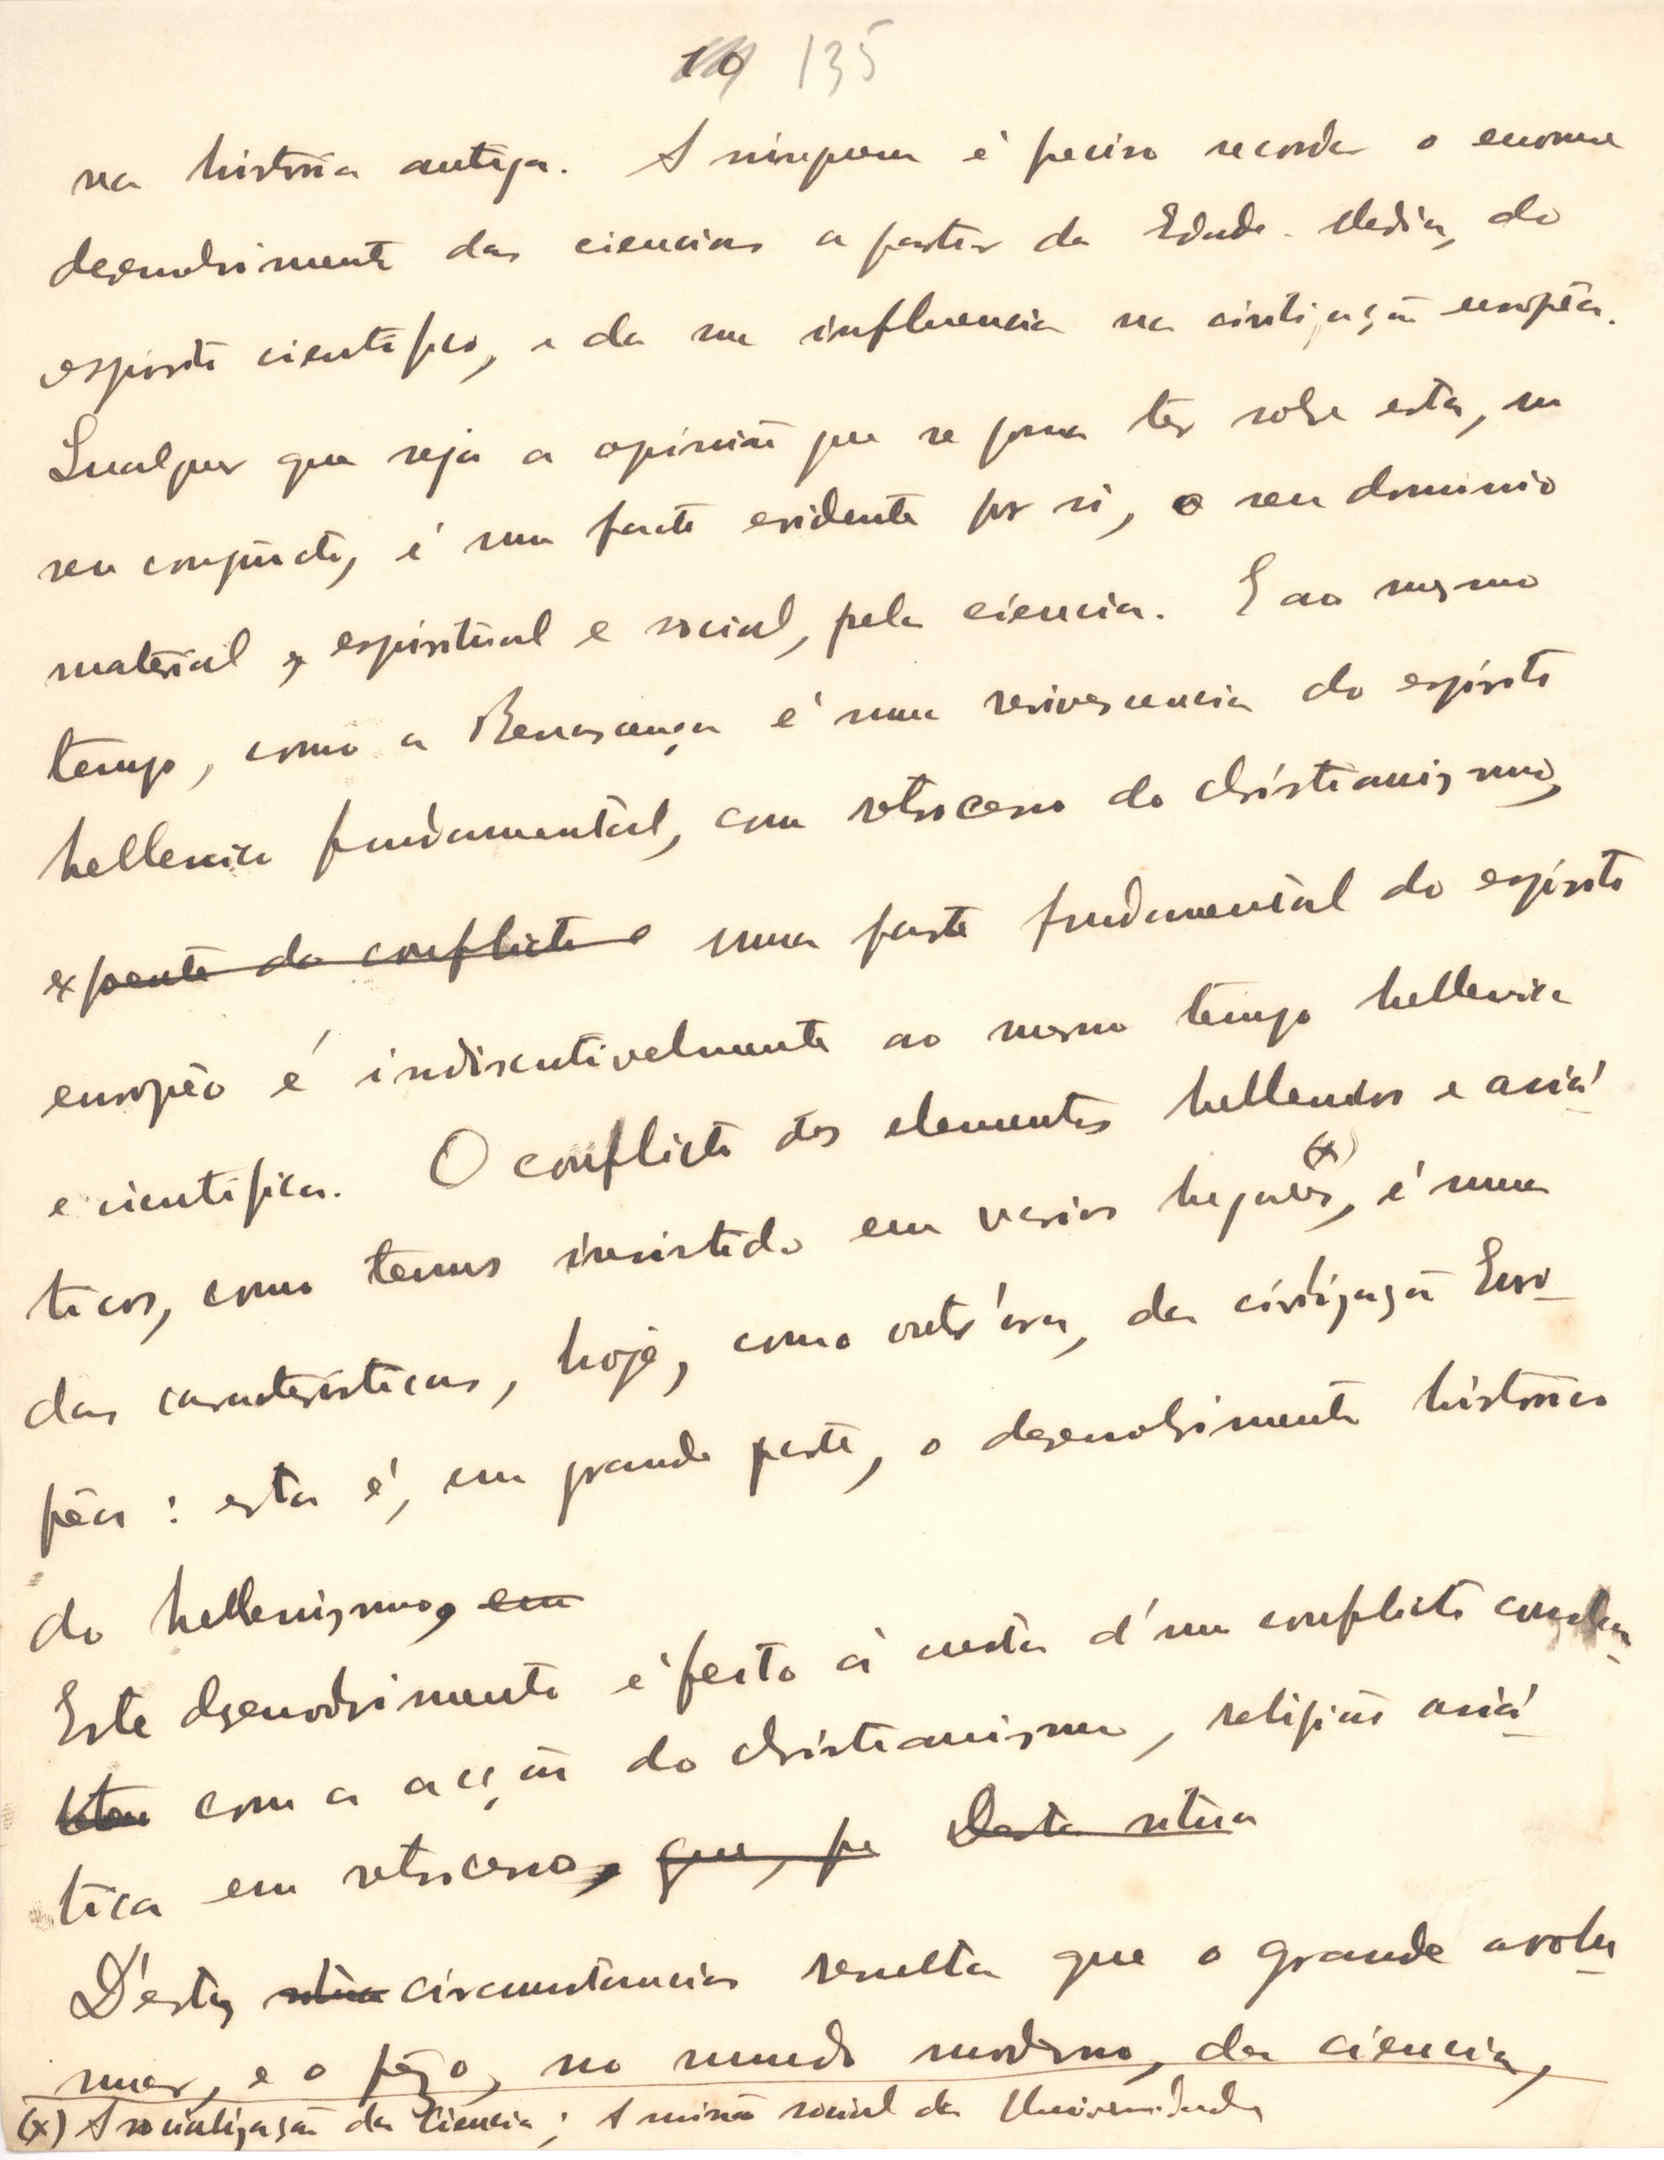 135
na história antiga. A ninguem é preciso recordar o enorme
desenvolvimento das ciencias a partir da Edade-Media, do
espirito cientifico, e da sua influencia na civilização européa.
Qualquer que seja a opinião que se possa ter sobre esta, no
seu conjuncto, é um facto evidente por si, o seu dominio
material, espiritual e social, pela ciencia. E ao mesmo
tempo, como a Renascença é uma revivescencia do espirito
hellenico fundamental, com retrocesso do christianismo,
expoente do conflicto e uma parte fundamental do espirito
européo é indiscutivelmente ao mesmo tempo hellenica
e cientifica. O conflicto dos elementos hellenicos e asiá-
ticos, como temos insistido em varios lugares (x), é uma
das caracteristicas, hoje, como outr'ora, da civilização Euro-
péa: esta é, em grande parte, o desenvolvimento historico
do hellenismo, em
Este desenvolvimento é feito á custa d'um conflicto
com a acção do christianismo, religião asiá-
tica em retrocesso, que, pe Desta situa
D'estas situa circumstancias resulta que o grande avolu-
mar, e o pêzo, no mundo moderno, da ciencia,
(x) A socialização da Ciencia; A missão social da Universidade